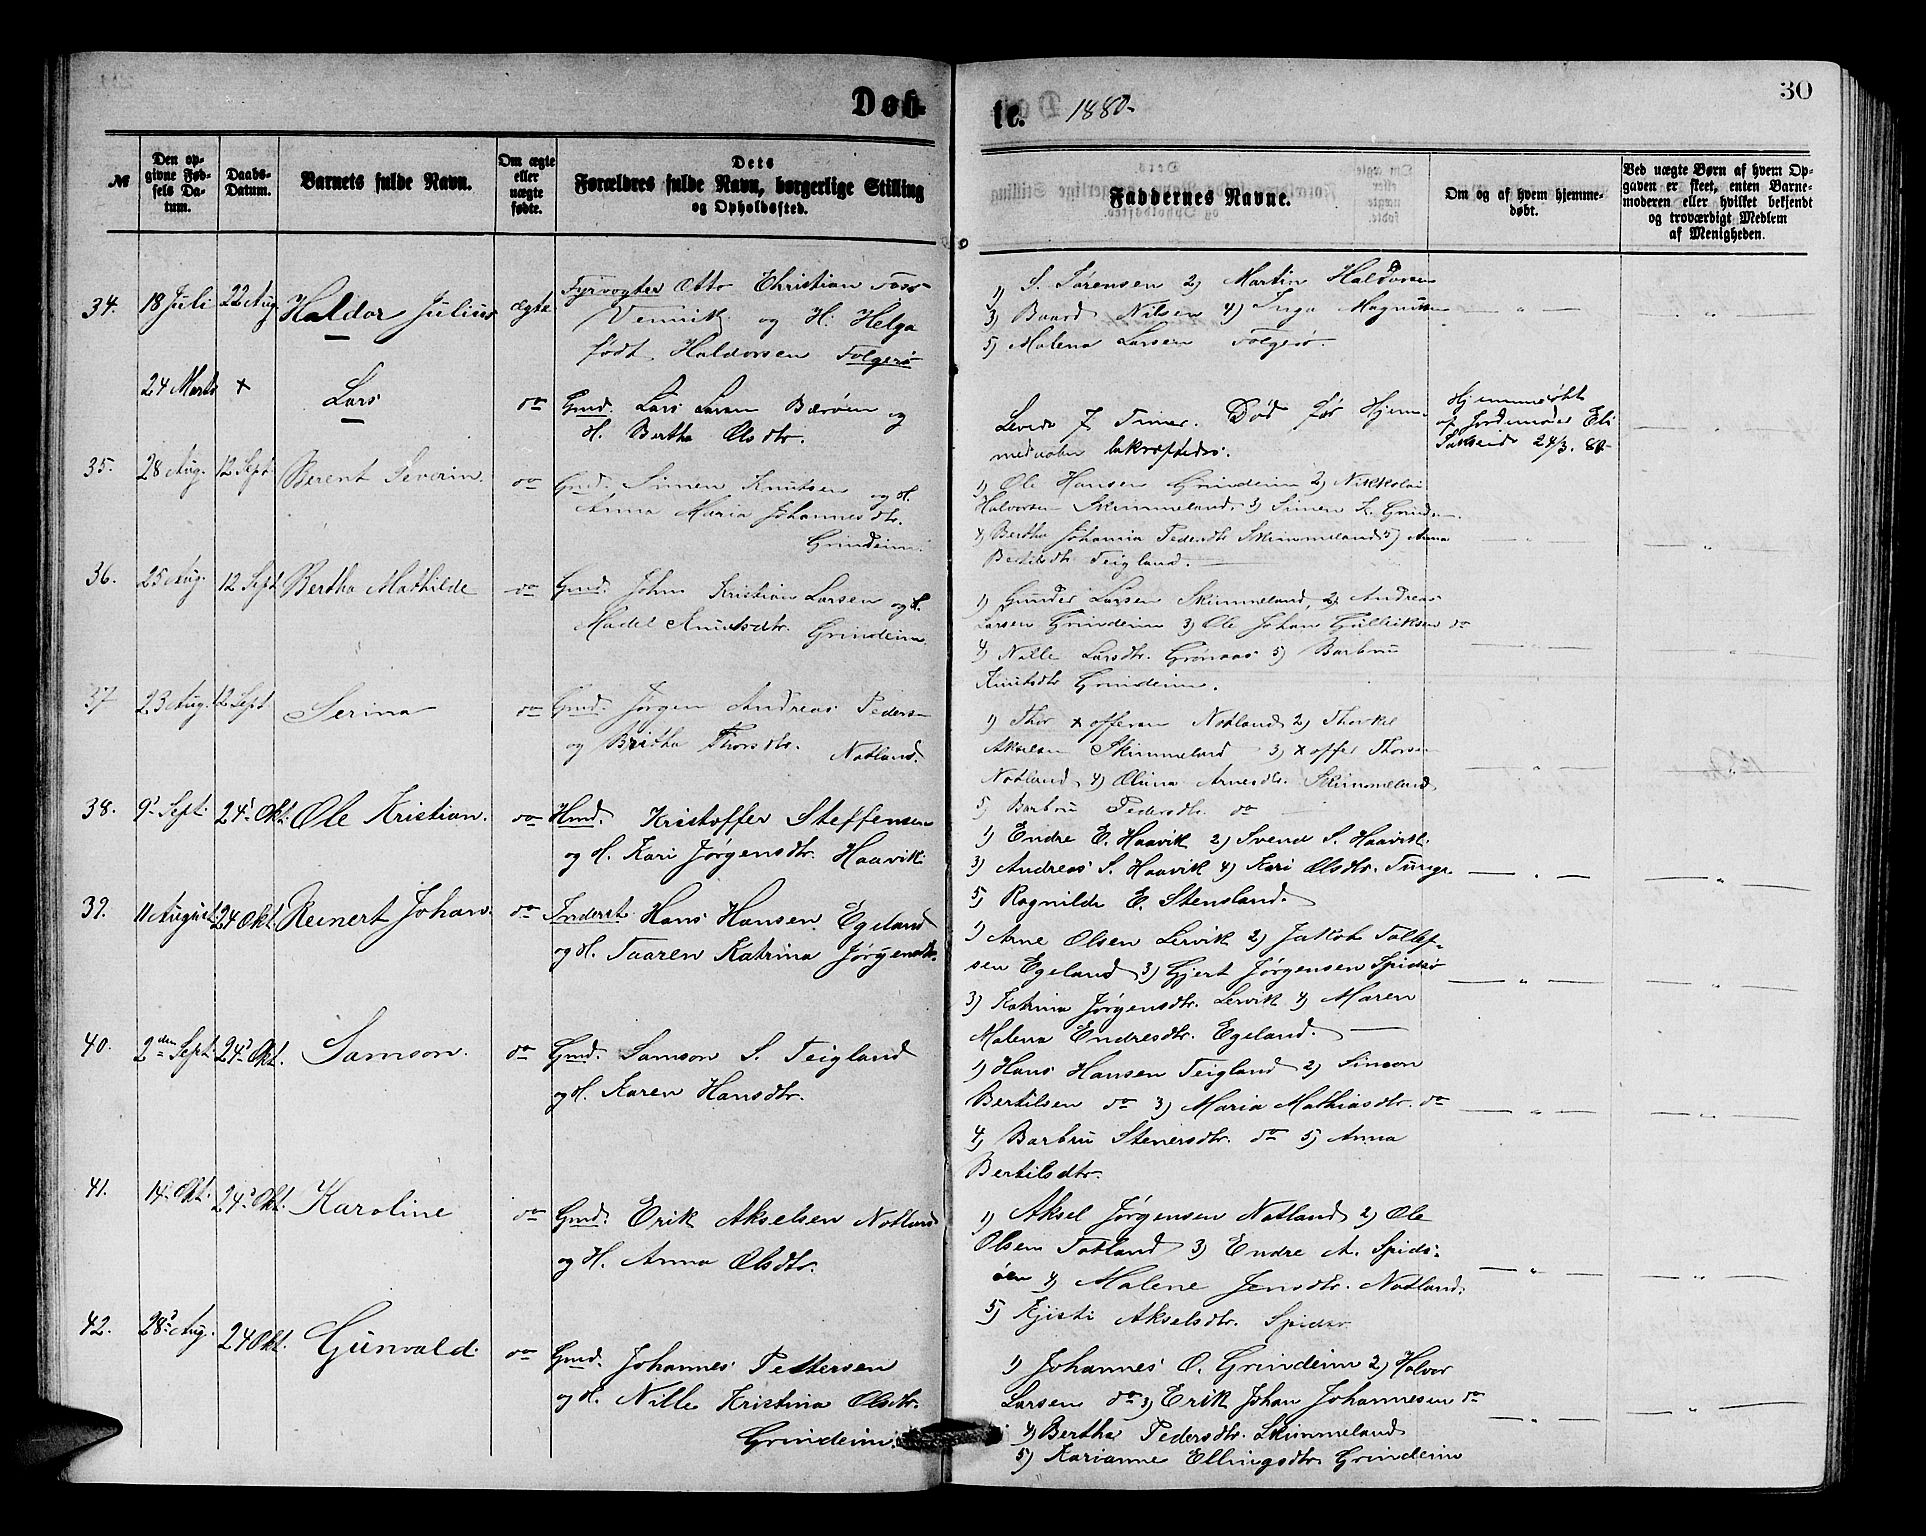 Døb-
te. 1880.
30
№
Den op-
givne Fød-
sels Da-
tum.
Daabs-
Datum.
Barnets fulde Navn.
Om ægte
eller
uægte
fødte.
Dets
Forældres fulde Navn, borgerlige Stilling
og Opholdssted.
Faddernes Navne.
Om og af hvem hjemme-
døbt.
Ved uægte Børn af hvem Op-
gaven er skeet, enten Barne-
moderen eller hvilket bekjendt
og troværdigt Medlem
af Menigheden.
34. 18 Juli 22 Aug. Haldor Julius ægte
Fyrvogter Otto Christian
Vennik og H. Helga
født Haldorsen Folgerø
1) S. Sørensen 2) Martin Haldorsen
3) Baard Nilsen 4) Inga Magnusen
5) Malena Larsen Folgerø.
24 Marts + Lars do
Gmd. Lars Larsen Bærøen og
H. Bertha Olsdtr.
Levede 7 Timer. Død før Hjem-
medaaben bekræftedes.
Hjemmedøbt
af Jordemoder Eli
24/3. 80
35. 28 Aug. 12 Sept. Berent Severin. do
Gmd. Simen Knutsen og H.
Anna Maria Johannesdtr.
Grindeim.
1) Ole Hansen Grindeim 2) Nikkolai
Halvorsen Skimmeland 3) Simen K. Grindem
4) Bertha Johanna Pedersdtr Skimmeland 5) Anna
Bertilsdtr Teigland.
36. 25 Aug. 12 Sept Bertha Mathilde do
Gmd. John Kristian Larsen og H.
Madel Knutsdtr. Grindeim
1) Gunder Larsen Skimmeland, 2) Andreas
Larsen Grindeim 3) Ole Johan Gulleiksen do
4) Nille Larsdtr. Grønaas 5) Barbru
Knutsdtr Grindeim.
37 23 Aug. 12 Sept Serina do
Gmd. Jørgen Andreas Pedersen
og Britha Thorsdtr. Notland.
1) Thor +offersen Notland 2) Thorkel
Akselsen Skimmeland 3) +offer Thorsen
Notland 4) Olina Arnesdtr. Skimmeland
5) Barbru Pedersdtr. do
38. 9. Sept. 24. Okt. Ole Kristian. do
Hmd. Kristoffer Steffensen
og H. Kari Jørgensdtr. Haavik.
1) Endre E. Haavik 2) Svend S. Haavik.
3) Andreas S. Haavik 4) Kari Olsdtr.
5) Ragnilde E. Stensland.
39. 11 August 24 Okt. Reinert Johan. do
Inderst Hans Hansen Egeland
og H. Taaren Katrina Jørgensdtr.
1) Arne Olsen Lervik 2) Jakob Tollef-
sen Egeland 3) Gjert Jørgensen Spidsø
3) Katrina Jørgensdtr. Lervik 4) Maren
Malena Endresdtr. Egeland.
40. 2den Sept. 24. Okt. Samson. do
Gmd. Samson S. Teigland
og H. Karen Hansdtr.
1) Hans Hansen Teigland 2) Simon
Bertilsen do 3) Maria Mathiasdtr. do
4) Barbru Stenersdtr. do 5) Anna
Bertilsdtr.
41. 14. Okt. 24. Okt. Karoline do
Gmd. Erik Akselsen Notland
og H. Anna Olsdtr.
1) Aksel Jørgensen Notland 2) Ole
Olsen Totland 3) Endre A. Spids-
øen 4) Malene Jensdtr. Notland.
5) Kjisti Akselsdtr. Spidsø
42. 28. Aug. 24 Okt. Gunvald. do
Gmd. Johannes Pettersen
og H. Nille Kristina Olsdtr.
Grindeim.
1) Johannes O. Grindeim 2) Halvor
Larsen do 3) Erik Johan Johannesen do
4) Bertha Pedersdtr. Skimmeland
5) Karianne Ellingsdtr Grindeim